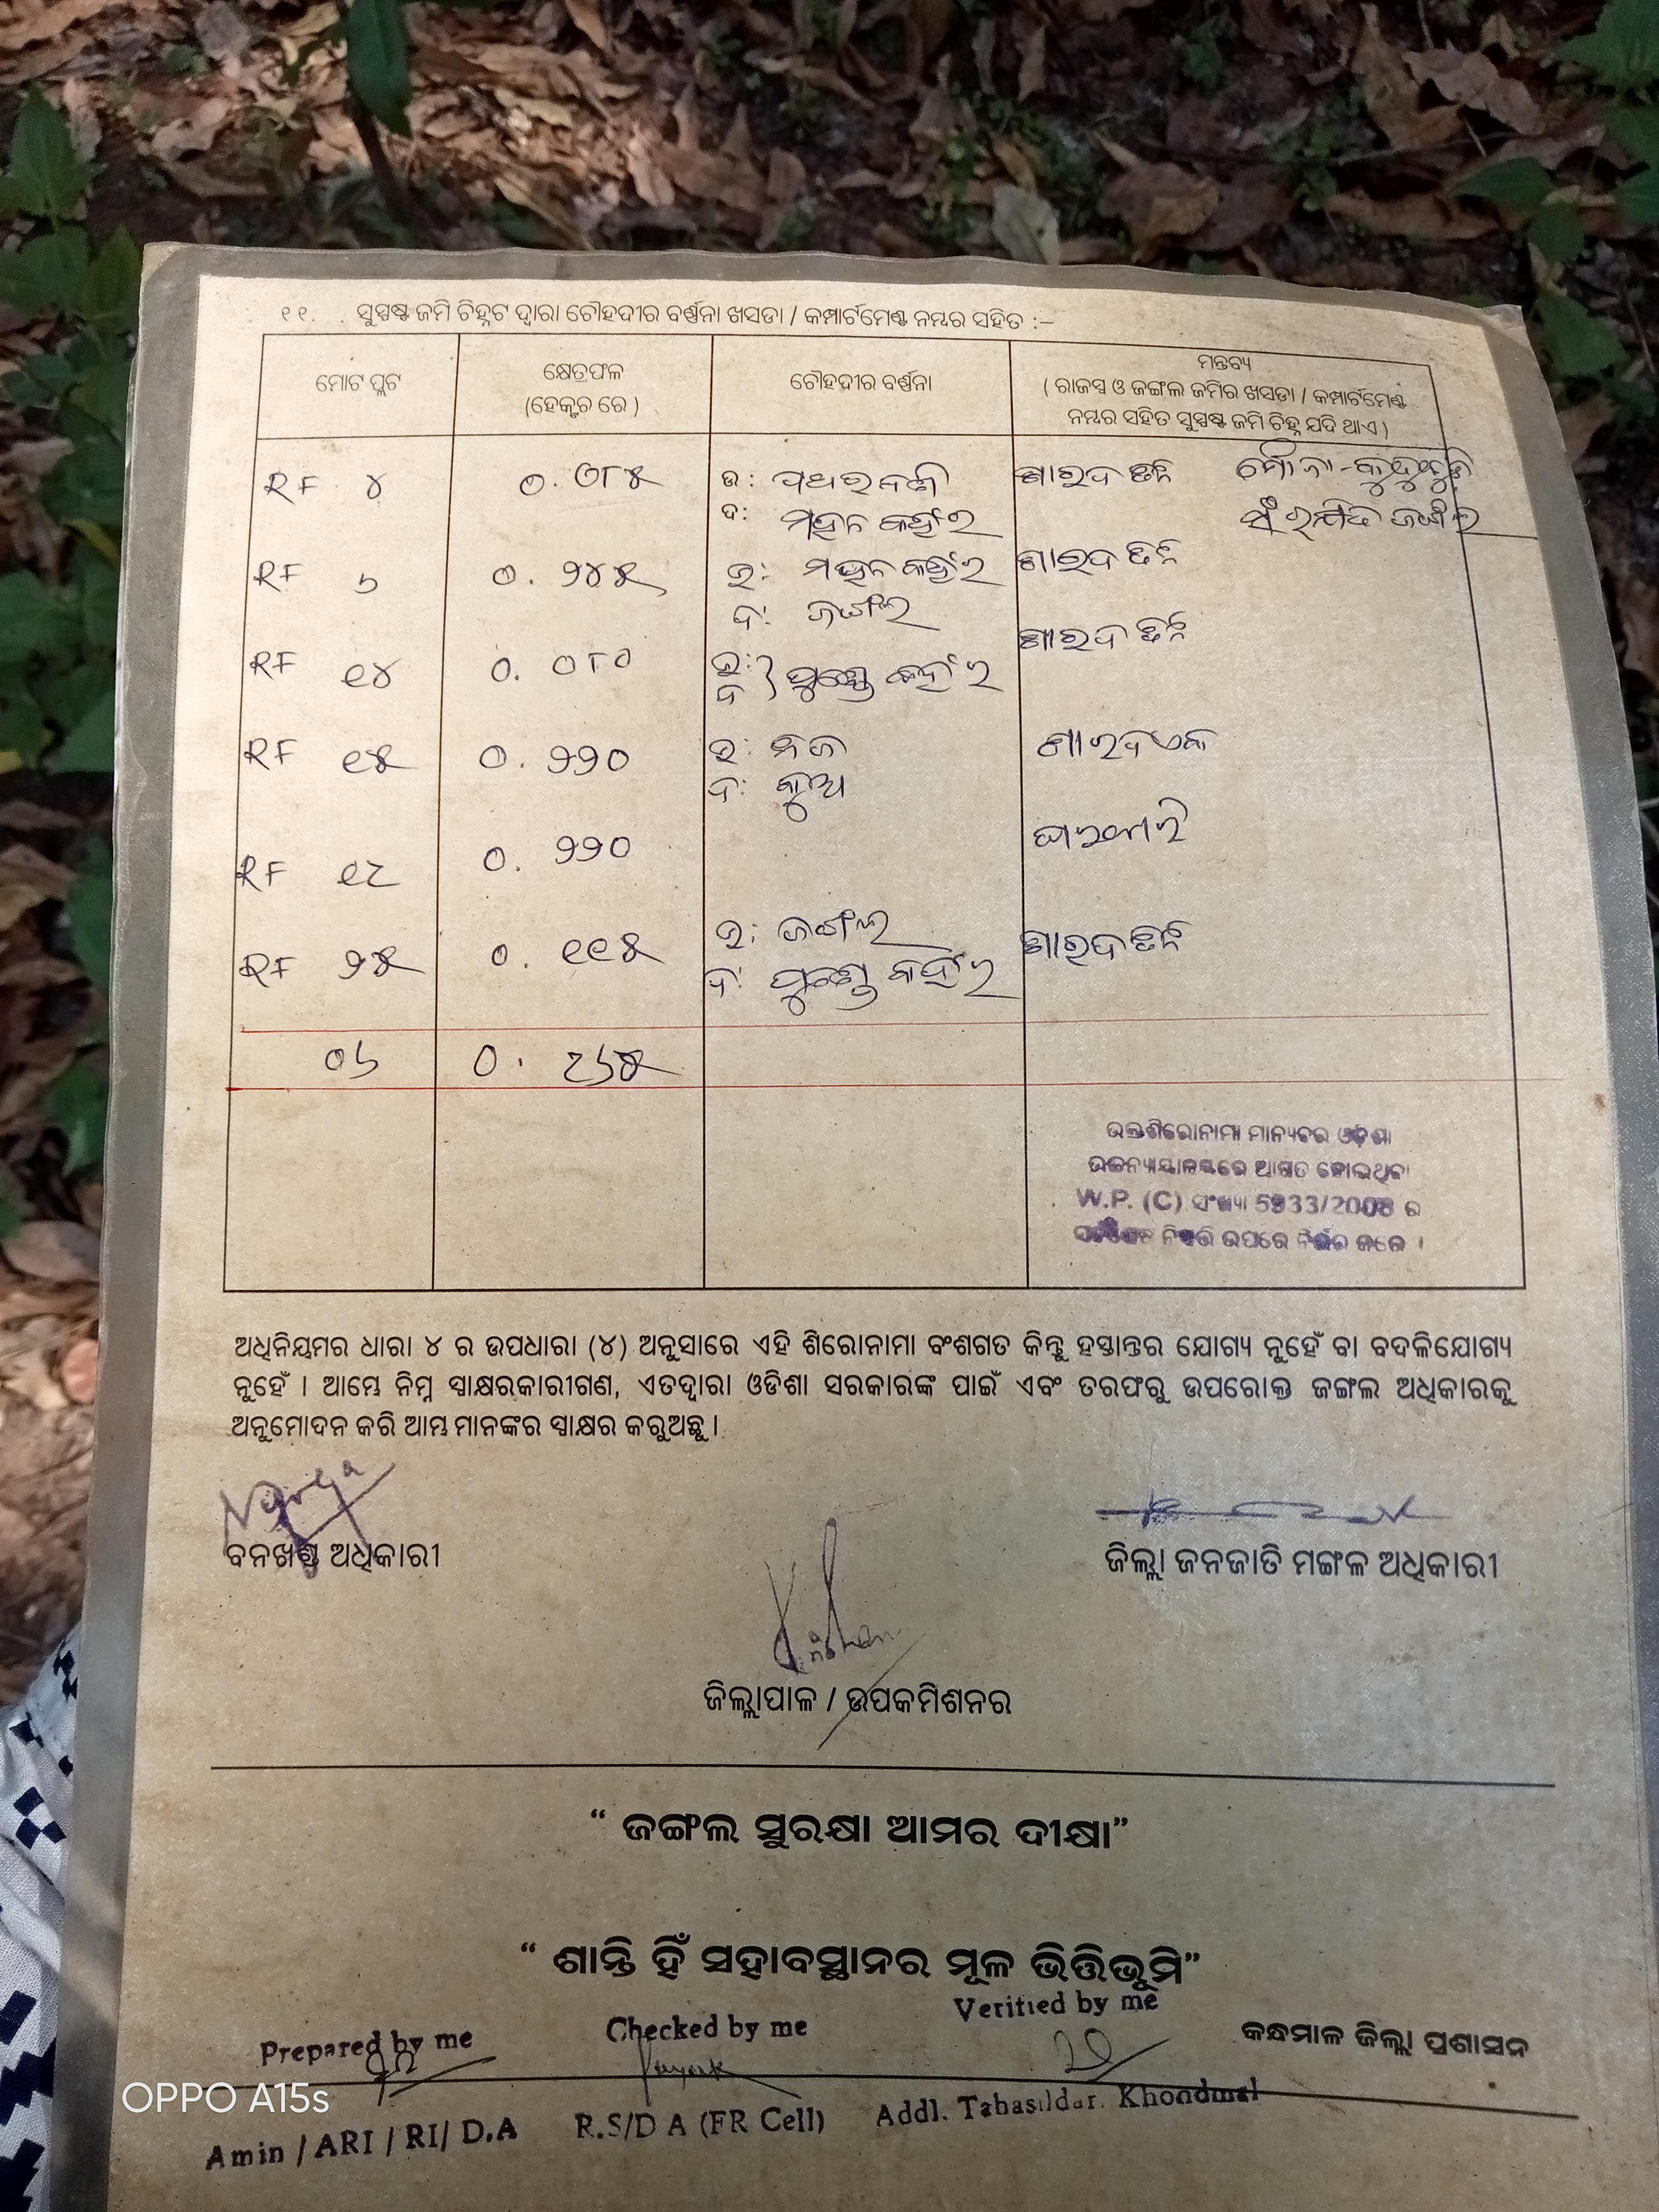 ୧୧. ସୁସ୍ପଷ୍ଟ ଜମି ଚିହ୍ନଟ ଦ୍ୱାରା ଚୌହଦୀର ବର୍ଣ୍ଣନା ଖସଡା / କମ୍ପାର୍ଟମେଣ୍ଟ ନମ୍ବର ସହିତ :–
ମୋଟ ପ୍ଲଟ
କ୍ଷେତ୍ରଫଳ
(ହେକ୍ଟର ରେ )
ଚୌହଦୀର ବର୍ଣ୍ଣନା
ମନ୍ତବ୍ୟ
( ରାଜସ୍ୱ ଓ ଜଙ୍ଗଲ ଜମିର ଖସଡା / କମ୍ପାର୍ଟମେଣ୍ଟ
ନମ୍ବର ସହିତ ସୁସ୍ପଷ୍ଟ ଜମି ଚିହ୍ନ ଯଦି ଥାଏ )
RF ୪ ୦.୦୮୫ ଉ: ଶାରଦ ତିନି ମୌଜା-
ଦ: ମହନ କହଁର ସଂରକ୍ଷିତ ଜଙ୍ଗଲ
RF ୬ ୦. ୨୪୫ ଉ: ମହନ କହଁର ଶାରଦ ତିନି
ଦ: ଜଙ୍ଗଲ
RF ୧୪ ୦. ୦୮୦ ଉ: ଦ } କହଁର ଶାରଦ ତିନି
RF ୧୫ ୦. ୨୨୦ ଉ: ନିଜ ଶାରଦ ଏକ
ଦ: କୁଅ
RF ୧୮ ୦. ୨୨୦ ଘରବାରି
RF ୨୫ ୦. ୧୧୫ ଉ: ଜଙ୍ଗଲ ଶାରଦ ତିନି
ଦ: କହଁର
୦୬ ୦. ୯୬୫
ଉକ୍ତ ଶିରୋନାମା ମାନ୍ୟବର ଓଡ଼ିଶା
ଉଚ୍ଚନ୍ୟାୟାଳୟରେ ଆଗତ ହୋଇଥିବା
W.P. (C) ସଂଖ୍ୟା 5933/2008 ର
ନିଷ୍ପତ୍ତି ଉପରେ ନିର୍ଭର କରେ ।
ଅଧିନିୟମର ଧାରା ୪ ର ଉପଧାରା (୪) ଅନୁସାରେ ଏହି ଶିରୋନାମା ବଂଶଗତ କିନ୍ତୁ ହସ୍ତାନ୍ତର ଯୋଗ୍ୟ ନୁହେଁ ବା ବଦଳିଯୋଗ୍ୟ
ନୁହେଁ । ଆମ୍ଭେ ନିମ୍ନ ସ୍ୱାକ୍ଷରକାରୀଗଣ, ଏତଦ୍ୱାରା ଓଡିଶା ସରକାରଙ୍କ ପାଇଁ ଏବଂ ତରଫରୁ ଉପରୋକ୍ତ ଜଙ୍ଗଲ ଅଧିକାରକୁ
ଅନୁମୋଦନ କରି ଆମ୍ଭ ମାନଙ୍କର ସ୍ୱାକ୍ଷର କରୁଅଛୁ ।
ବନଖଣ୍ଡ ଅଧିକାରୀ
ଜିଲ୍ଲା ଜନଜାତି ମଙ୍ଗଳ ଅଧିକାରୀ
ଜିଲ୍ଲାପାଳ / ଉପକମିଶନର
“ ଜଙ୍ଗଲ ସୁରକ୍ଷା ଆମର ଦୀକ୍ଷା”
“ ଶାନ୍ତି ହିଁ ସହାବସ୍ଥାନର ମୂଳ ଭିତ୍ତିଭୂମି”
Prepared by me Checked by me Verified by me
କନ୍ଧମାଳ ଜିଲ୍ଲା ପ୍ରଶାସନ
Amin / ARI / RI/ D.A R.S/D A (FR Cell) Addl. Tahasildar. Khondmal
OPPO A15s